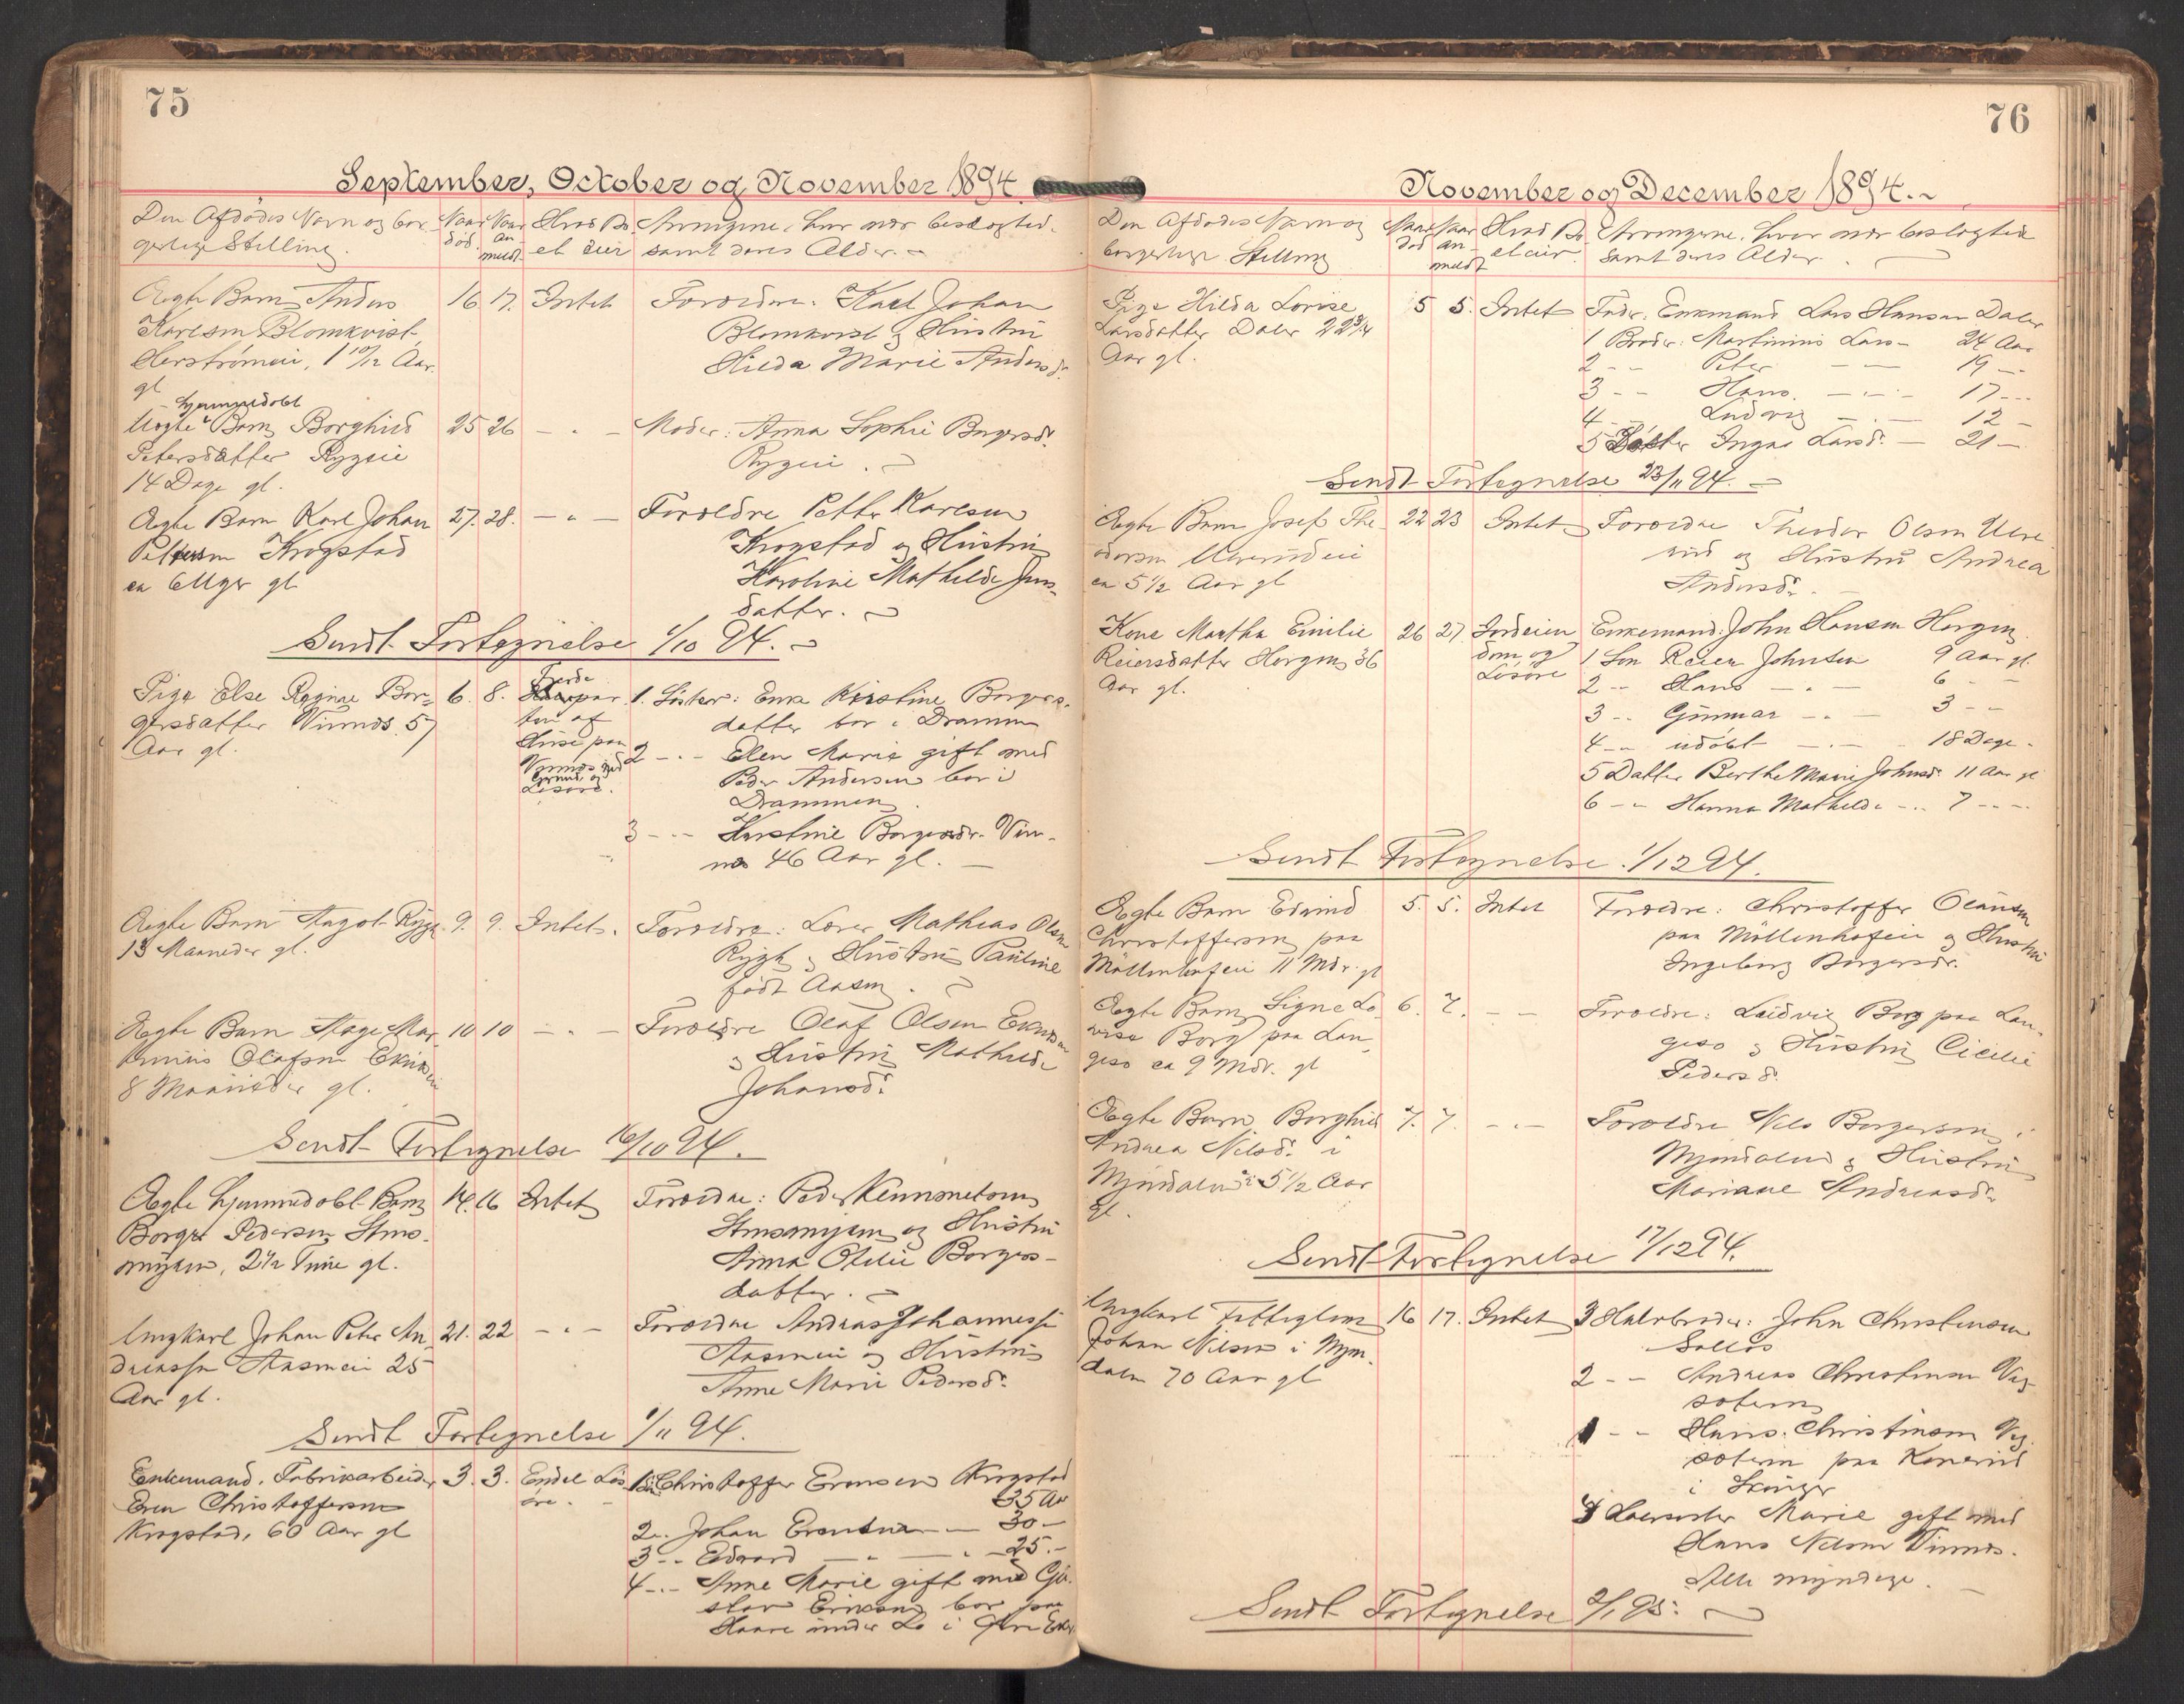 75
September, October og November 1894.
Den Afdødes Navn og bor-
gerlige Stilling.
Naar død.
Naar anmeldt
Hvad Bo-
et eier
Arvingene, hvor nær beslægtede
samt deres Alder.
Ægte Barn Anders
Karlsen Blomkvist,
1 10/12 Aar
gl
16. 17. Intet
Forældre: Karl Johan
Blomkvist og Hustru
Hilda Marie Andersd.
hjemmedøbt
Uægte Barn Borghild
Petersdatter Rygeie
14 Dage gl.
25 26 - " -
Moder: Anna Sophie
Rygeie.
Ægte Barn Karl Johan
Pettersen Krogstad
ca 6 Uger gl
27. 28. - " -
Forældre Petter Karlsen
Krogstad og Hustru
Karoline Mathilde Jens-
datter.
Sendt Fortegnelse 1/10 94.
Pige Else Regine Bor-
gersdatter Vinnes 57
Aar gl.
6. 8. Fjerde
parten af
Huse paa
Vinnes med
Grund og
Løsøre.
1. Søster: Enke Kirstine Borgers-
datter bor i Drammen
2 - " - Elen Marie gift med
Peder Andersen bor i
Drammen
3 - " - Karoline Borgersdr. Vin-
nes 46 Aar gl.
Ægte Barn Aagot Rygh
13 Maaneder gl.
9. 9. Intet.
Forældre: Lærer Mathias Olsen
Rygh og Hustru Pauline
født Aasen.
Ægte Barn Aage Mar-
Olafsen
8 Maaneder gl.
10 10 - " -
Forældre Olaf Olsen
og Hustru Mathilde
Johansd.
Sendt Fortegnelse 16/10 94.
Ægte hjemmedøbt Barn
Borger Pedersen Stens-
myren, 2 1/2 Time gl.
14. 16 Intet
Forældre: Peder
Stensmyren og Hustru
Anna Otelie Borgers-
datter.
Ungkarl Johan Peter An-
dreassen Aasmeie 25
Aar gl.
21. 22 - " -
Forældre Andreas Johannessen
Aasmeie og Hustru
Anne Marie Pedersd.
Sendt Fortegnelse 1/11 94.
Enkemand, Fabrikarbeider
Even Christoffersen
Krogstad, 60 Aar gl
3. 3. Endel Løs-
øre.
1 Søn Christoffer Evensen Krogstad
35 Aar
2 " Johan Evensen - 30 -
3 - " Edvard - " - 25. -
4 - " - Anne Marie gift med Gu-
stav Eriksen bor paa
Haare under Lo i Øvre Eker
76
November og December 1894.
Den Afdødes Navn og
borgerlige Stilling
Naar død
Naar anmeldt
Hvad Bo-
et eier
Arvingerne, hvor nær beslægtede
samt deres Alder.
Pige Hilda Lovise
Larsdatter Daler 22 3/4
Aar gl.
5 5. Intet
Fader: Enkemand Lars Hansen Daler
1 Broder: Martinius Lars- 24 Aar
2 - - Peter - - 19 -
3 - - Hans - " - 17 -
4 - - Ludvig - " - 12 -
5 Søster Inga Larsd. - 21 -
Sendt Fortegnelse 23/11 94.
Ægte Barn Josef The-
odorsen Ulverudeie
ca 5 1/2 Aar gl
22 23 Intet
Forældre Theodor Olsen Ulve-
rud og Hustru Andrea
Andersd.
Kone Martha Emilie
Reiersdatter Horgen 36
Aar gl.
26 27. Jordeien-
dom og
Løsøre
Enkemand: John Hansen Horgen
1 Søn Reier Johnsen 9 Aar gl.
2 - - Hans - " - 6 - -
3 - - Gunnar - " - 3 - -
4 - - udøbt - " - 18 Dage -
5 Datter Berthe Marie Johnsd. 11 Aar gl
6 - " Hanna Mathilde - " 7 - -
Sendt Fortegnelse 1/12 94.
Ægte Barn Eivind
Christoffersen paa
Möllenhofeie 11 Mdr. gl
5. 5. Intet
Forældre: Christoffer Olausen
paa Möllenhofeie og Hustru
Ingeborg Borgersdr.
Ægte Barn Signe Lo-
vise Borg paa Lan-
gesø ca 9 Mdr. gl
6. 7. - -
Forældre: Ludvig Borg paa Lan-
gesø og Hustru Cicilie
Pedersd.
Ægte Barn Borghild
Andrea Nilsd. i
Mjøndalen 5 1/2 Aar
gl.
7. 7. - " -
Forældre Nils Borgersen i
Mjøndalen og Hustru
Mariane Andreasdr.
Sendt Fortegnelse 17/12 94.
Ungkarl Fattiglem
Johan Nilsen i Mjøn-
dalen 70 Aar gl
16 17. Intet
3 Halvbroder: John Christensen
Solløs
2 - - Andreas Christensen
1 - - Hans Christensen
paa
i
4 Halvsøster Marie gift med
Hans Nilsen Vinnes.
Alle myndige.
Sendt Fortegnelse 2/1 95.